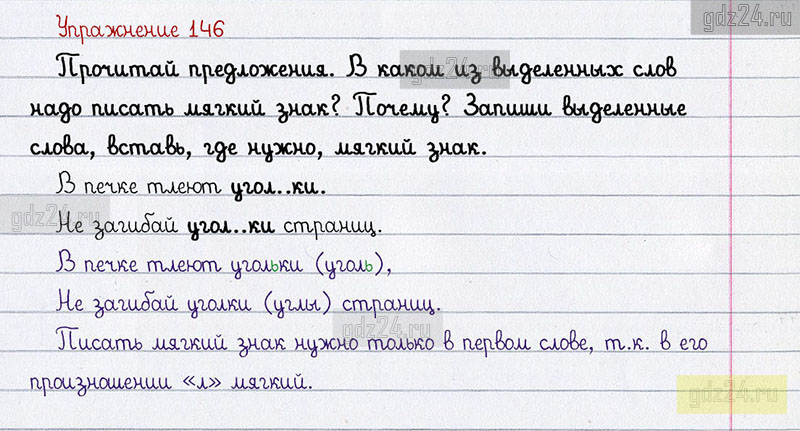 gdz24.ru
Упражнение 146
gdz24.ru
Прочитай предложения. В каком из выделенных слов
надо писать мягкий знак? Почему? Запиши выделенные
слова, вставь, где нужно, мягкий знак.
В печке тлеют угол..ки.
gdz24.ru
Не загибай угол..ки страниц.
В печке тлеют угольки (уголь),
Не загибай уголки (углы) страниц.
gdz24.ru
Писать мягкий знак нужно только в первом слове, т.к. в его
произношении «л» мягкий.
gdz24.ru